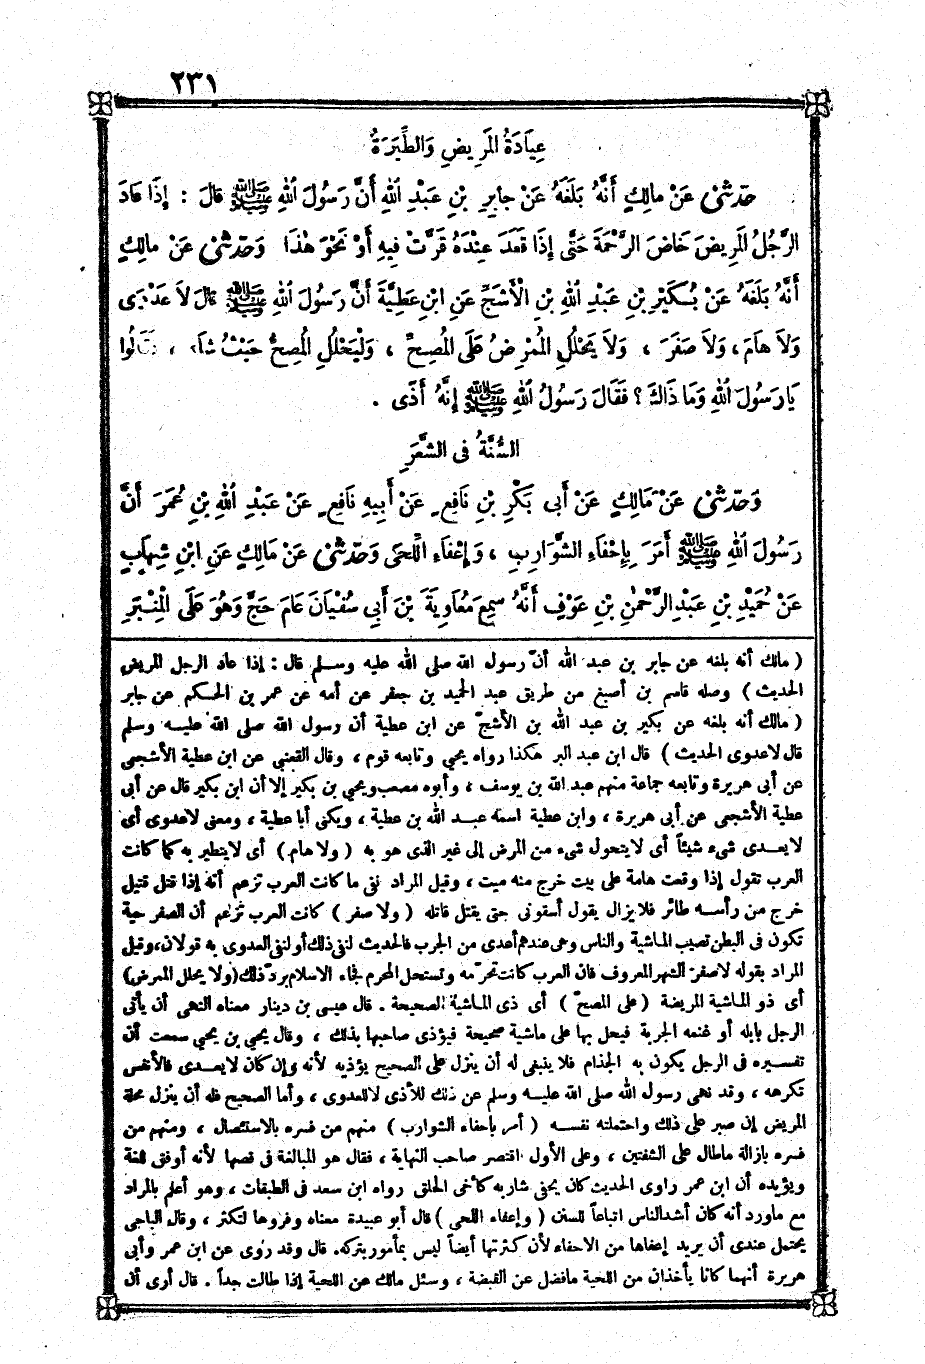 ٢٣١
عِيَادَةُ الْمَرِيضِ وَالطِّيَرَةُ
حَدَّثَنِي عَنْ مَالِكٍ أَنَّهُ بَلَغَهُ عَنْ جَابِرِ بْنِ عَبْدِ اللهِ أَنَّ رَسُولَ اللهِ ﷺ قَالَ : إِذَا عَادَ
الرَّجُلُ الْمَرِيضَ خَاضَ الرَّحْمَةَ حَتَّى إِذَا قَعَدَ عِنْدَهُ قَرَّتْ فِيهِ أَوْ نَحْوَ هٰذَا وَحَدَّثَنِي عَنْ مَالِكٍ
أَنَّهُ بَلَغَهُ عَنْ بُكَيْرِ بْنِ عَبْدِ اللهِ بْنِ الْأَشَجِّ عَنِ ابْنِ عَطِيَّةَ أَنَّ رَسُولَ اللهِ ﷺ قَالَ لاَ عَدْوَى
وَلاَ هَامَ ، وَلاَ صَفَرَ ، وَلاَ يَحْلُلِ الْمُمْرِضُ عَلَى الْمُصِحِّ ، وَلْيَحْلُلِ الْمُصِحُّ حَيْثُ شَاءَ ، فَقَالُوا
يَا رَسُولَ اللهِ وَمَا ذَاكَ ؟ فَقَالَ رَسُولُ اللهِ ﷺ إِنَّهُ أَذًى .
السُّنَّةُ فِي الشَّعَرِ
وَحَدَّثَنِي عَنْ مَالِكٍ عَنْ أَبِي بَكْرِ بْنِ نَافِعٍ عَنْ أَبِيهِ نَافِعٍ عَنْ عَبْدِ اللهِ بْنِ عُمَرَ أَنَّ
رَسُولَ اللهِ ﷺ أَمَرَ بِإِحْفَاءِ الشَّوَارِبِ ، وَإِعْفَاءِ اللِّحَى وَحَدَّثَنِي عَنْ مَالِكٍ عَنِ ابْنِ شِهَابٍ
عَنْ حُمَيْدِ بْنِ عَبْدِ الرَّحْمٰنِ بْنِ عَوْفٍ أَنَّهُ سَمِعَ مُعَاوِيَةَ بْنَ أَبِي سُفْيَانَ عَامَ حَجَّ وَهُوَ عَلَى الْمِنْبَرِ
( مالك أنه بلغه عن جابر بن عبد الله أنّ رسول الله صلى الله عليه وسلم قال : إذا عاد الرجل المريض
الحديث ) وصله قاسم بن أصبغ من طريق عبد الحميد بن جعفر عن أمه عن عمر بن الحكم عن جابر
( مالك أنه بلغه عن بكير بن عبد الله بن الأشجّ عن ابن عطية أن رسول الله صلى الله عليه وسلم
قال لاعدوى الحديث ) قال ابن عبد البر هكذا رواه يحيي وتابعه قوم ، وقال القعنبي عن ابن عطية الأشجعي
عن أبي هريرة وتابعه جماعة منهم عبد الله بن يوسف ، وأبوه مصعب ويحيي بن بكير إلا أن ابن بكير قال عن أبي
عطية الأشجعي عن أبي هريرة ، وابن عطية اسمه عبد الله بن عطية ، ويكنى أبا عطية ، ومعنى لاعدوى أى
لايعدى شيء شيئاً أى لايتحول شيء من المرض إلى غير الذى هو به ( ولا هام ) أى لايتطير به كما كانت
العرب تقول إذا وقعت هامة على بيت خرج منه ميت ، وقيل المراد نفى ما كانت العرب تزعم أنه إذا قتل قتيل
خرج من رأسه طائر فلا يزال يقول أسقونى حتى يقتل قاتله ( ولا صفر ) كانت العرب تزعم أن الصفر حية
تكون فى البطن تصيب الماشية والناس وهى عندهم أعدى من الجرب فالحديث لنفى ذلك أو لنفى العدوى به قولان ، وقيل
المراد بقوله لاصفر الشهر المعروف فان العرب كانت تحرّمه وتستحل المحرم فجاء الاسلام بردّ ذلك ( ولا يحلل الممرض )
أى ذو الماشية المريضة ( على المصحّ ) أى ذى الماشية الصحيحة . قال عيسى بن دينار معناه النهى أن يأتى
الرجل بابله أو غنمه الجربة فيحل بها على ماشية صحيحة فيؤذى صاحبها بذلك ، وقال يحيي بن يحيي سمعت أن
تفسيره فى الرجل يكون به الجذام فلا ينبغى له أن ينزل على الصحيح يؤذيه لأنه وإن كان لايعدى فالأنفس
تكرهه ، وقد نهى رسول الله صلى الله عليه وسلم عن ذلك للأذى لا للعدوى ، وأما الصحيح فله أن ينزل محلة
المريض إن صبر على ذلك واحتملته نفسه ( أمر باحفاء الشوارب ) منهم من فسره بالاستئصال ، ومنهم من
فسره بازالة ماطال على الشفتين ، وعلى الأول اقتصر صاحب النهاية ، فقال هو المبالغة فى قصها لأنه أوفق للغة
ويؤيده أن ابن عمر راوى الحديث كان يحفى شاربه كأخى الحلق رواه ابن سعد فى الطبقات ، وهو أعلم بالمراد
مع ماورد أنه كان أشد الناس اتباعاً للسنن ( وإعفاء اللحى ) قال أبو عبيدة معناه وفروها لتكثر ، وقال الباجى
يحتمل عندى أن يريد إعفاها من الاحفاء لأن كثرتها أيضاً ليس بمأمور بتركه . قال وقد روى عن ابن عمر وأبى
هريرة أنهما كانا يأخذان من اللحية مافضل عن القبضة ، وسئل مالك عن اللحية إذا طالت جداً . قال أرى أن